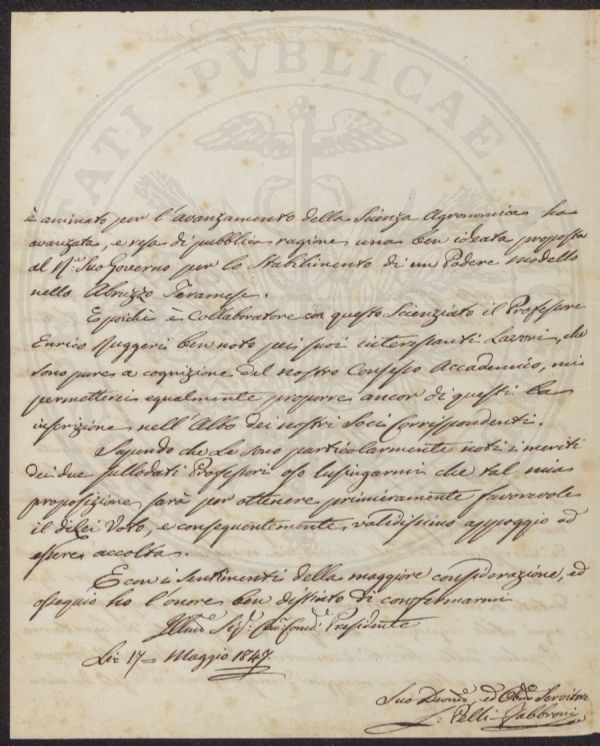 TATI PVBLICAE
è animato per l'avanzamento della Scienza Agronomica ha
avanzata, e resa di pubblica ragione una ben ideata proposta
al Suo Governo per lo Stabilimento di un Podere modello
nello Abruzzo Teramese.
E poichè è Collaboratore con questo Scienziato il Professore
Enrico ben noto pei suoi interessanti Lavori, che
sono pure a cognizione del nostro Consesso Accademico, mi
permetterei egualmente proporre ancor di questi la
inscrizione nell'Albo dei nostri Soci Corrispondenti.
Sapendo che Le sono particolarmente noti i meriti
dei due sullodati Professori oso lusingarmi che tal mia
proposizione sarà per ottenere primieramente favorevole
il di lei Voto, e conseguentemente validissimo appoggio ad
essere accolta.
E con i sentimenti della maggiore considerazione, ed
ossequio ho l'onore ben distinto di confermarmi
Illmo Sigr. Presidente
Li 17= Maggio 1847.
Suo Devmo ed Obbmo Servitore
Pelli Fabbroni